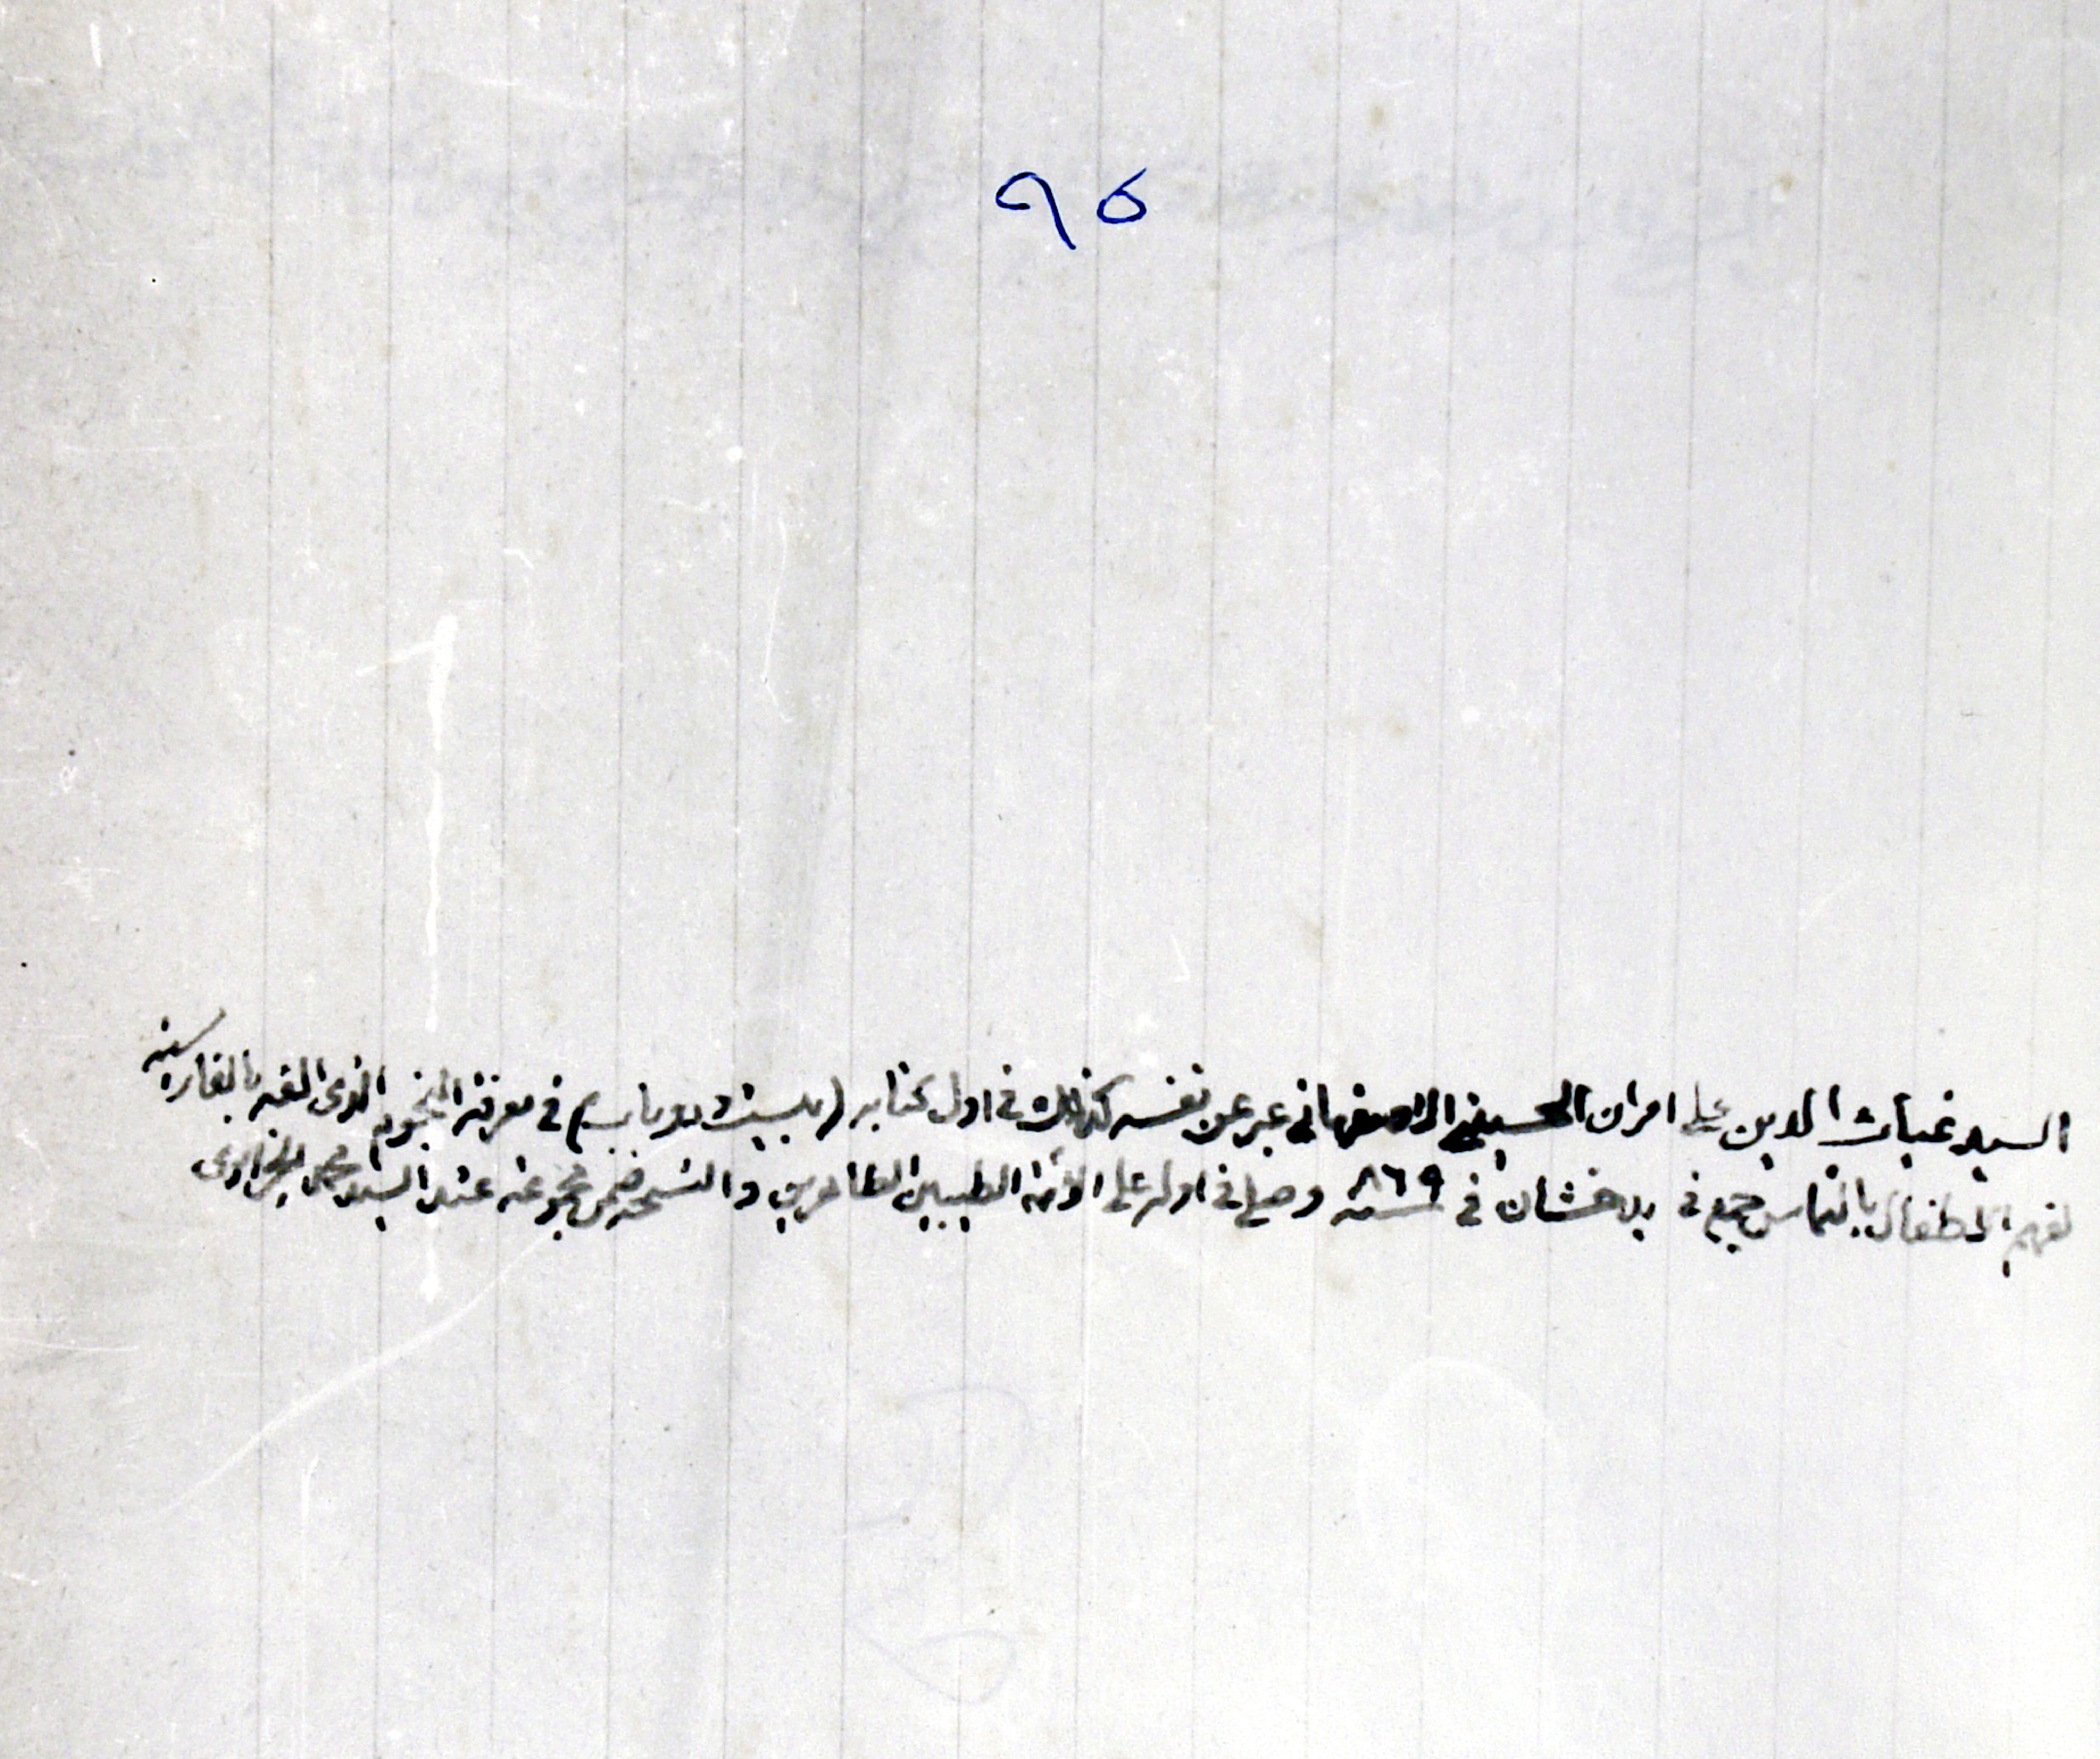 ٩٥
السيد غياث الدين علي اميران الحسيني الاصفهاني عبر عن نفسه كذلك في اول كتابه (بيست و دو باب) في معرفة النجوم الذي الفه بالفارسية
لفهم الاطفال بالتماس جمع في بدخشان في سنة ٨٦٩ وصلى في اوله على الائمة الطيبين الطاهرين والنسخة ضمن مجموعة عند السيد محمد الجزائري